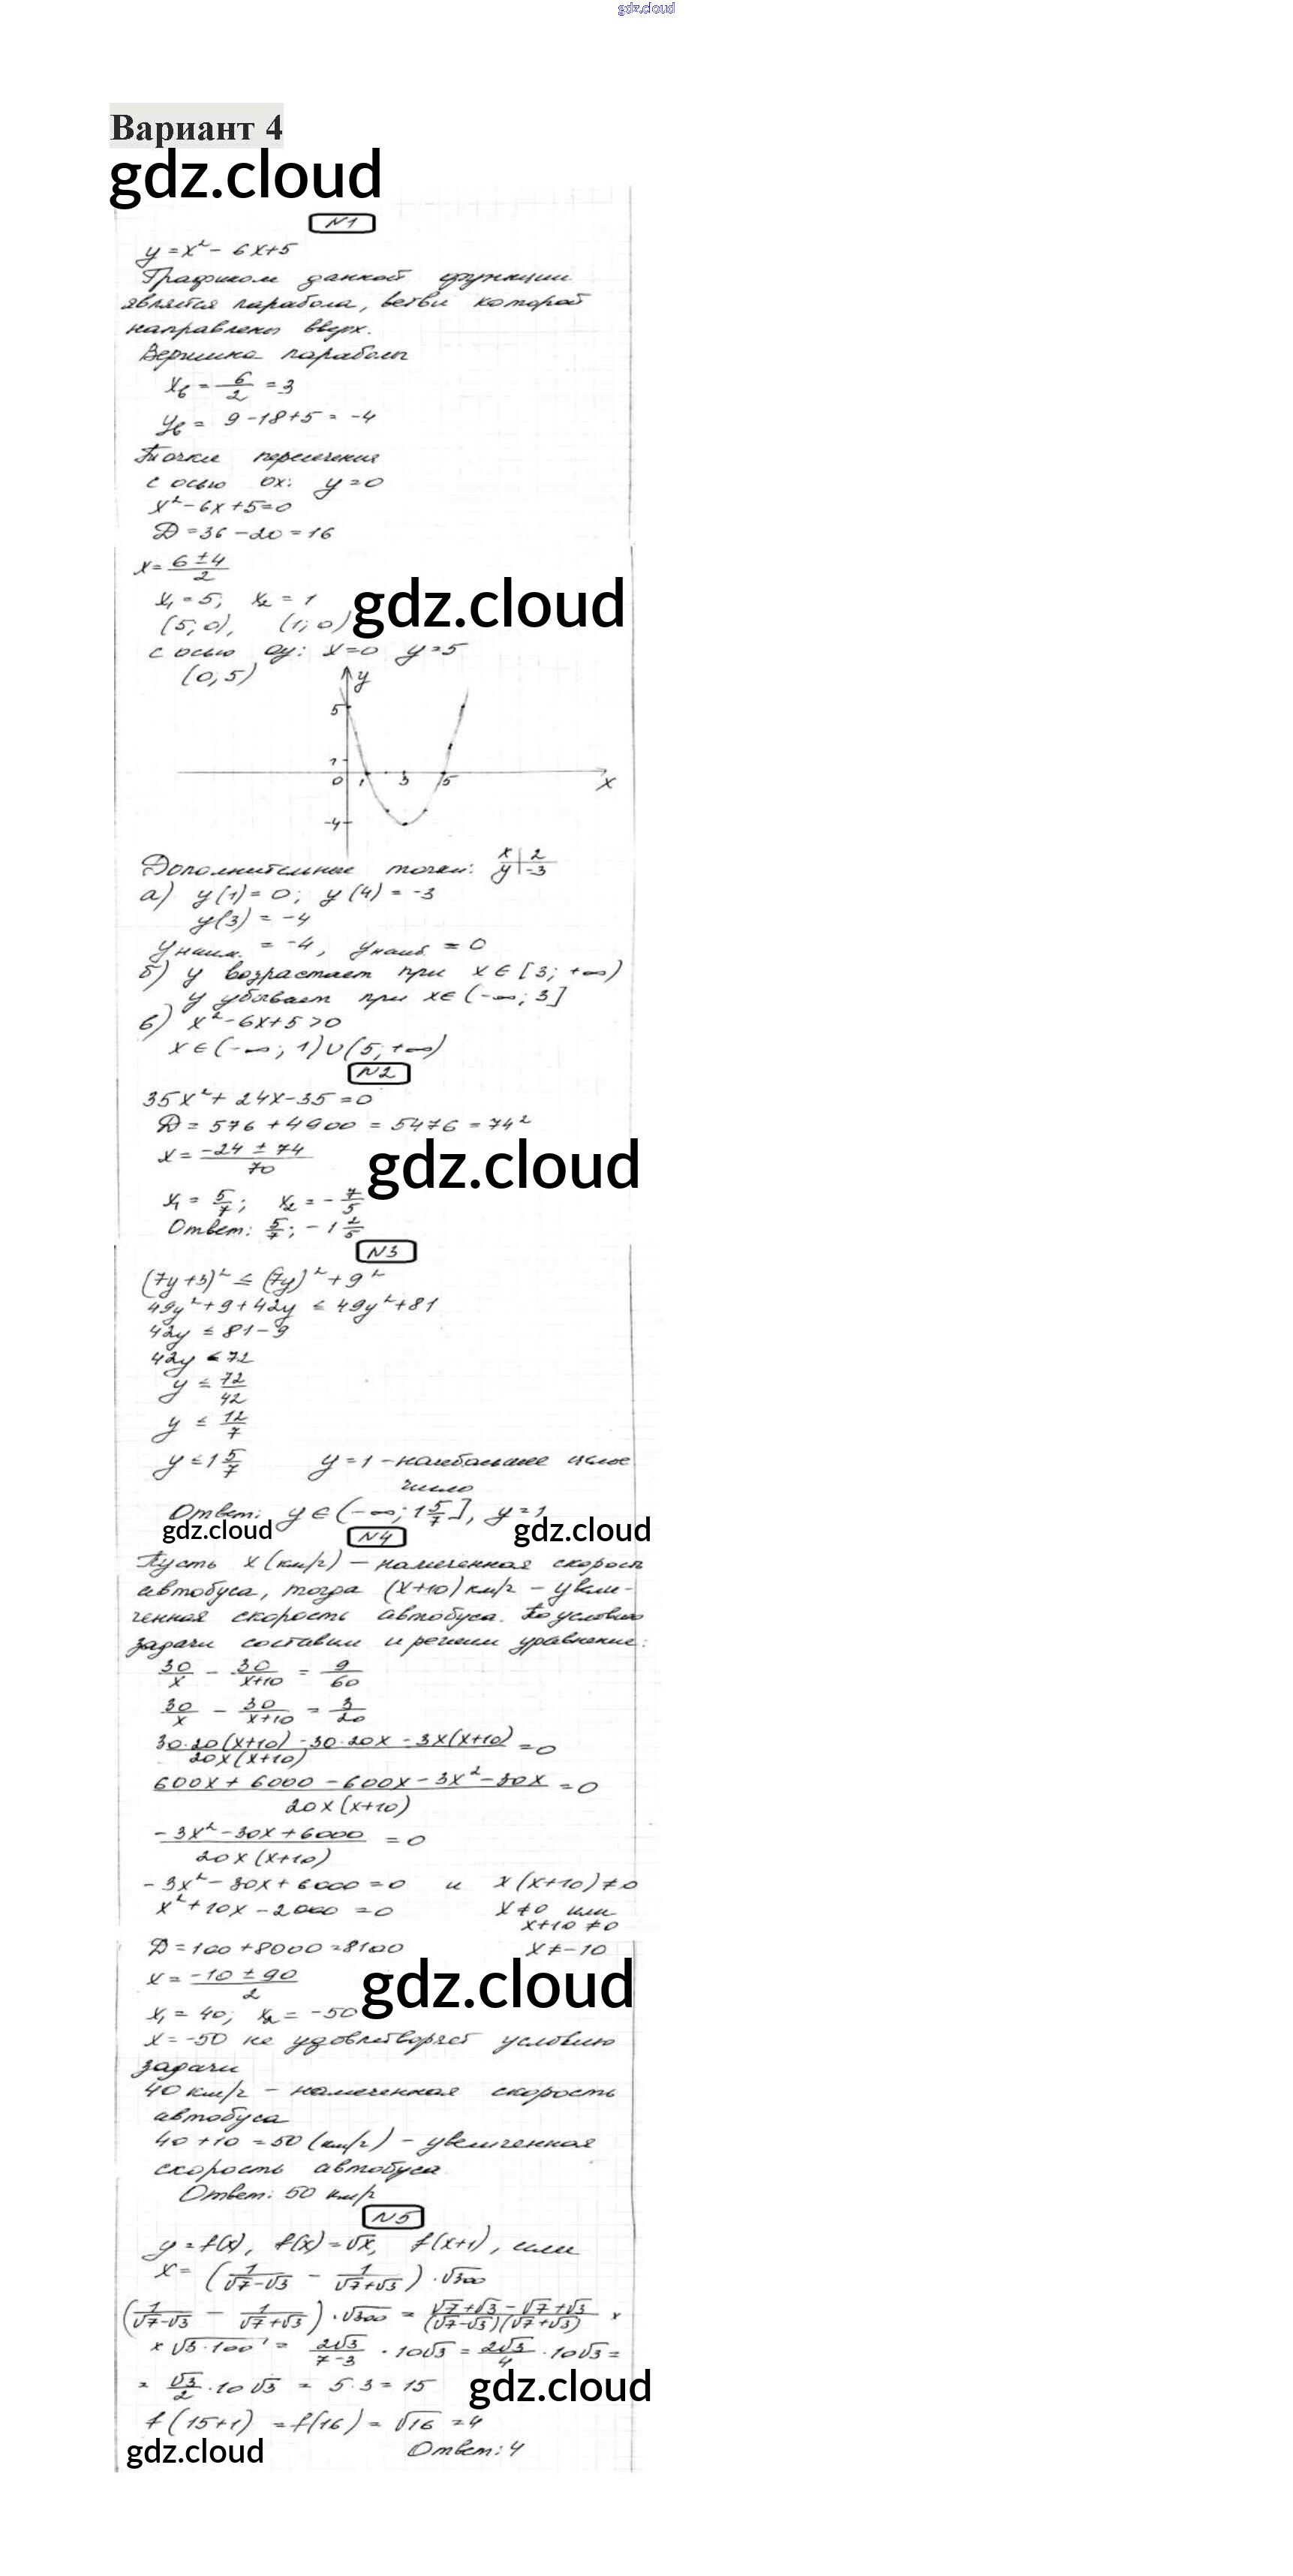 gdz.cloud
Вариант 4
gdz.cloud
N1
y = x² - 6x + 5
Графиком данной функции
является парабола, ветви которой
направлены вверх.
Вершина параболы
x_в = 6/2 = 3
y_в = 9 - 18 + 5 = -4
Точки пересечения
с осью ox: y = 0
x² - 6x + 5 = 0
D = 36 - 20 = 16
x = (6 ± 4)/2
x₁ = 5; x₂ = 1
(5; 0), (1; 0) gdz.cloud
с осью oy: x = 0 y = 5
(0; 5)
y
5
1
0 1 3 5 x
-4
Дополнительные точки: x | 2
y | -3
а) y(1) = 0; y(4) = -3
y(3) = -4
y наим. = -4, y наиб. = 0
б) y возрастает при x ∈ [3; +∞)
y убывает при x ∈ (-∞; 3]
в) x² - 6x + 5 > 0
x ∈ (-∞; 1) ∪ (5; +∞)
N2
35x² + 24x - 35 = 0
D = 576 + 4900 = 5476 = 74²
x = (-24 ± 74)/70
gdz.cloud
x₁ = 5/7; x₂ = -7/5
Ответ: 5/7; -1 2/5
N3
(7y + 3)² ≤ (7y)² + 9²
49y² + 9 + 42y ≤ 49y² + 81
42y ≤ 81 - 9
42y ≤ 72
y ≤ 72/42
y ≤ 12/7
y ≤ 1 5/7 y = 1 - наибольшее целое
число
Ответ: y ∈ (-∞; 1 5/7], y = 1
gdz.cloud gdz.cloud
N4
Пусть x (км/ч) - намеченная скорость
автобуса, тогда (x+10) км/ч - увели-
ченная скорость автобуса. По условию
задачи составим и решим уравнение:
30/x - 30/(x+10) = 9/60
30/x - 30/(x+10) = 3/20
(30·20(x+10) - 30·20x - 3x(x+10))/(20x(x+10)) = 0
(600x + 6000 - 600x - 3x² - 30x)/(20x(x+10)) = 0
(-3x² - 30x + 6000)/(20x(x+10)) = 0
-3x² - 30x + 6000 = 0 и x(x+10) ≠ 0
x² + 10x - 2000 = 0 x ≠ 0 или
x+10 ≠ 0
D = 100 + 8000 = 8100 x ≠ -10
x = (-10 ± 90)/2
gdz.cloud
x₁ = 40; x₂ = -50
x = -50 не удовлетворяет условию
задачи
40 км/ч - намеченная скорость
автобуса
40 + 10 = 50 (км/ч) - увеличенная
скорость автобуса
Ответ: 50 км/ч
N5
y = f(x), f(x) = √x, f(x+1), если
x = (1/(√7-√3) - 1/(√7+√3)) · √300
(1/(√7-√3) - 1/(√7+√3)) · √300 = (√7+√3-√7+√3)/((√7-√3)(√7+√3)) ×
× √(3·100) = 2√3/(7-3) · 10√3 = 2√3/4 · 10√3 =
= √3/2 · 10√3 = 5·3 = 15
gdz.cloud
f(15+1) = f(16) = √16 = 4
gdz.cloud
Ответ: 4